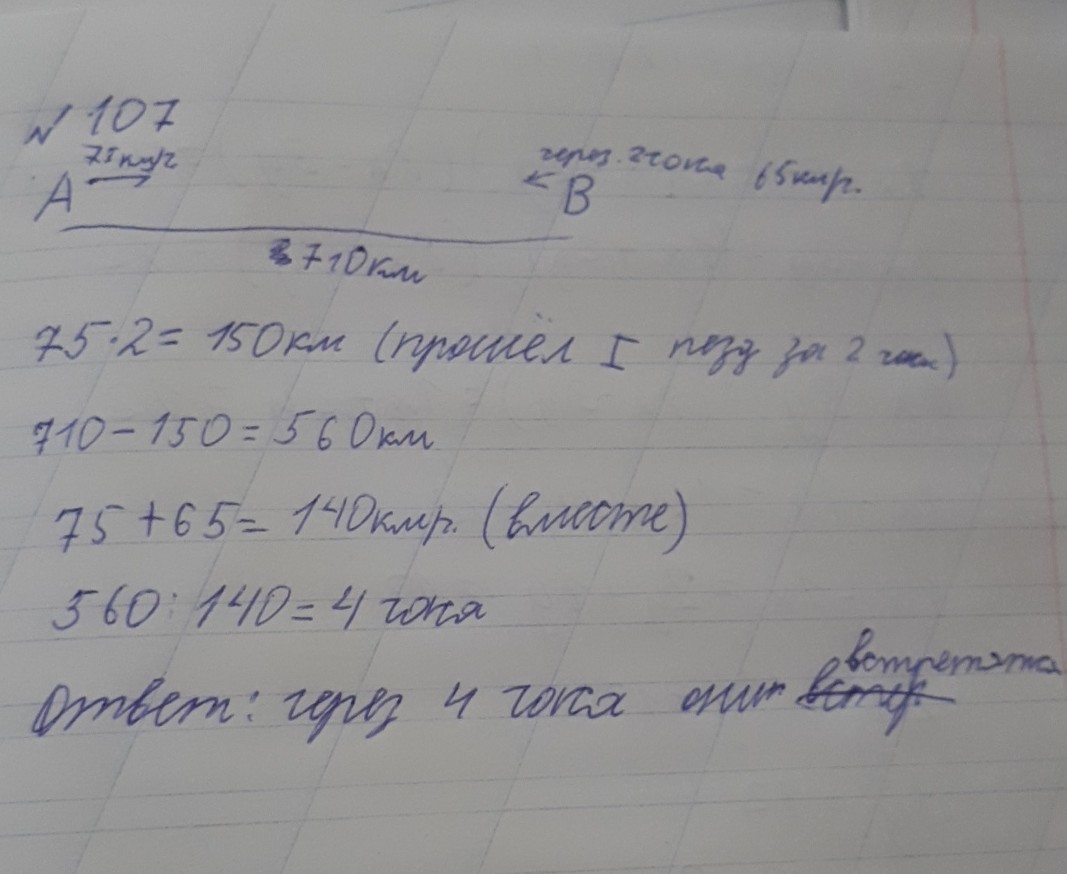 № 107
75км/ч
через 2 часа 65км/ч.
А В
710км
75·2= 150км (прошёл I поезд за 2 часа)
710-150=560км
75+65= 140км/ч. (вместе)
560:140=4 часа
Ответ: через 4 часа они встретятся